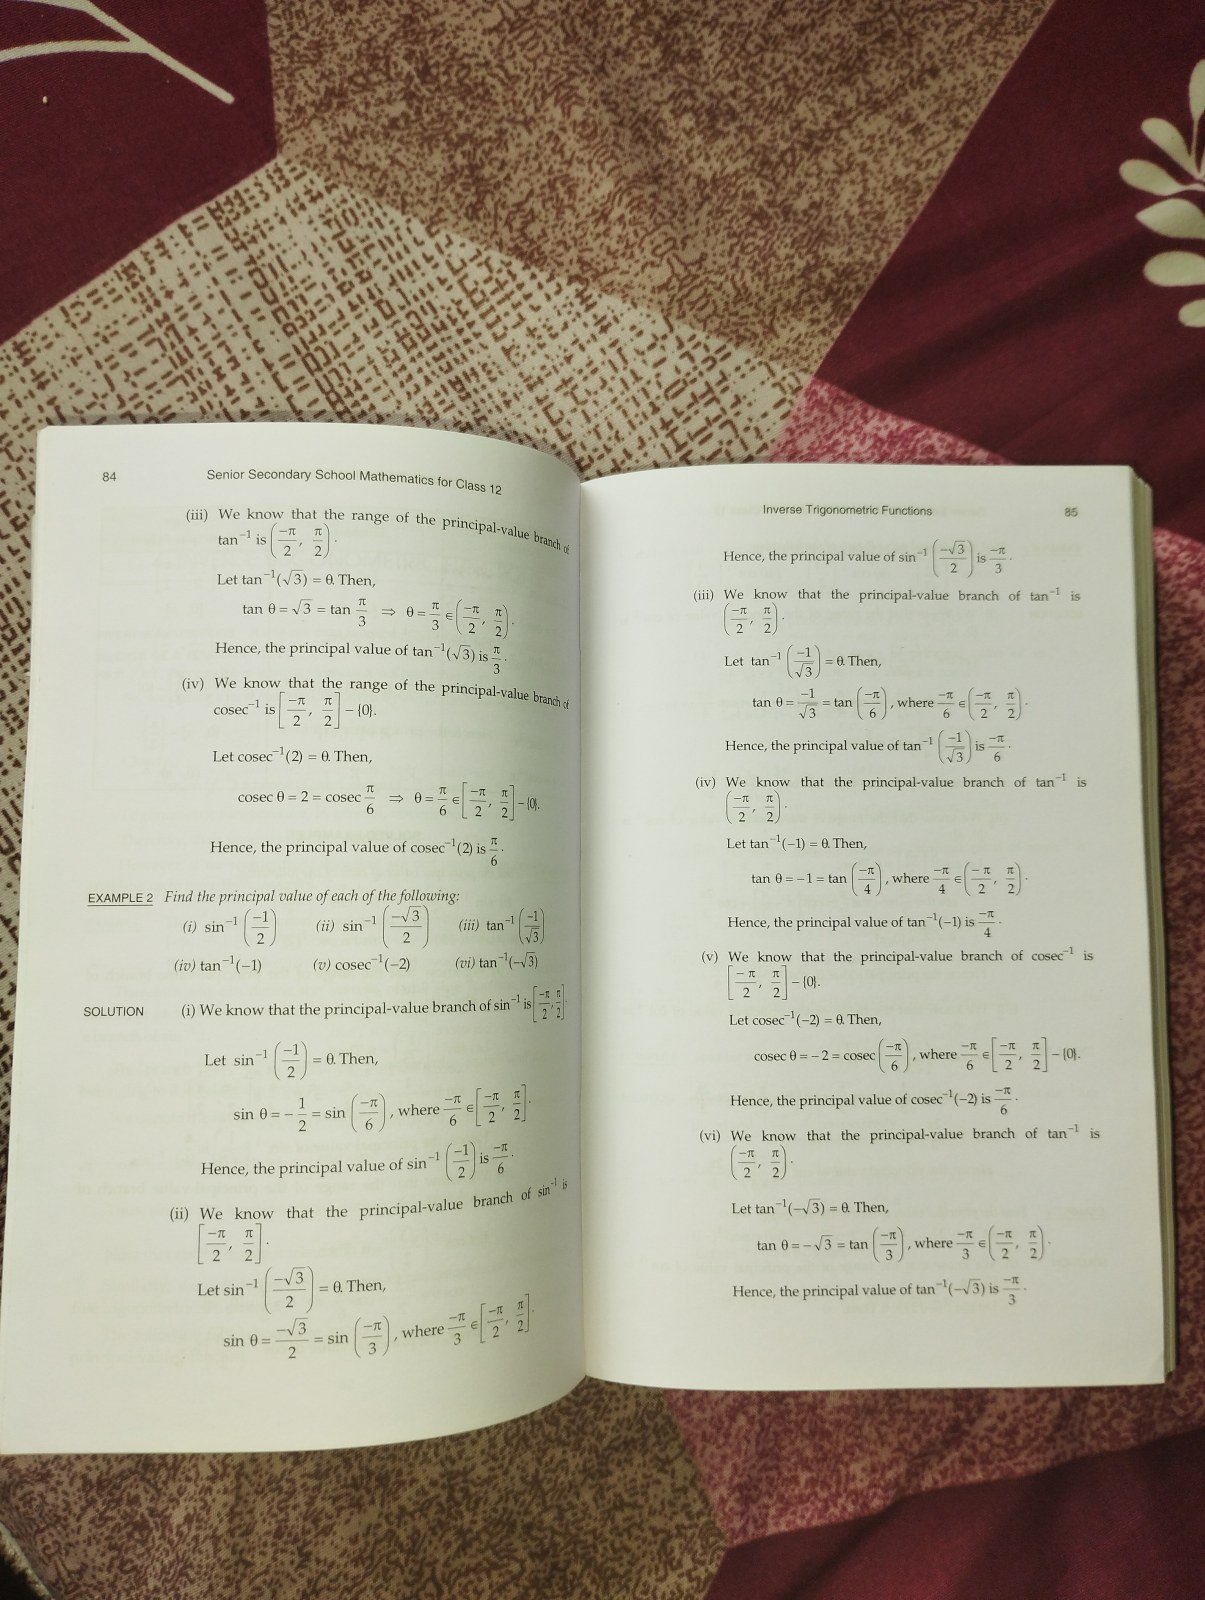 84 Senior Secondary School Mathematics for Class 12
(iii) We know that the range of the principal-value branch of
tan⁻¹ is (−π/2, π/2).
Let tan⁻¹(√3) = θ. Then,
tan θ = √3 = tan π/3 ⇒ θ = π/3 ∈ (−π/2, π/2).
Hence, the principal value of tan⁻¹(√3) is π/3.
(iv) We know that the range of the principal-value branch of
cosec⁻¹ is [−π/2, π/2] − {0}.
Let cosec⁻¹(2) = θ. Then,
cosec θ = 2 = cosec π/6 ⇒ θ = π/6 ∈ [−π/2, π/2] − {0}.
Hence, the principal value of cosec⁻¹(2) is π/6.
EXAMPLE 2 Find the principal value of each of the following:
(i) sin⁻¹(−1/2) (ii) sin⁻¹(−√3/2) (iii) tan⁻¹(−1/√3)
(iv) tan⁻¹(−1) (v) cosec⁻¹(−2) (vi) tan⁻¹(−√3)
SOLUTION (i) We know that the principal-value branch of sin⁻¹ is [−π/2, π/2].
Let sin⁻¹(−1/2) = θ. Then,
sin θ = −1/2 = sin(−π/6), where −π/6 ∈ [−π/2, π/2].
Hence, the principal value of sin⁻¹(−1/2) is −π/6.
(ii) We know that the principal-value branch of sin⁻¹ is
[−π/2, π/2].
Let sin⁻¹(−√3/2) = θ. Then,
sin θ = −√3/2 = sin(−π/3), where −π/3 ∈ [−π/2, π/2].
Inverse Trigonometric Functions 85
Hence, the principal value of sin⁻¹(−√3/2) is −π/3.
(iii) We know that the principal-value branch of tan⁻¹ is
(−π/2, π/2).
Let tan⁻¹(−1/√3) = θ. Then,
tan θ = −1/√3 = tan(−π/6), where −π/6 ∈ (−π/2, π/2).
Hence, the principal value of tan⁻¹(−1/√3) is −π/6.
(iv) We know that the principal-value branch of tan⁻¹ is
(−π/2, π/2).
Let tan⁻¹(−1) = θ. Then,
tan θ = −1 = tan(−π/4), where −π/4 ∈ (−π/2, π/2).
Hence, the principal value of tan⁻¹(−1) is −π/4.
(v) We know that the principal-value branch of cosec⁻¹ is
[−π/2, π/2] − {0}.
Let cosec⁻¹(−2) = θ. Then,
cosec θ = −2 = cosec(−π/6), where −π/6 ∈ [−π/2, π/2] − {0}.
Hence, the principal value of cosec⁻¹(−2) is −π/6.
(vi) We know that the principal-value branch of tan⁻¹ is
(−π/2, π/2).
Let tan⁻¹(−√3) = θ. Then,
tan θ = −√3 = tan(−π/3), where −π/3 ∈ (−π/2, π/2).
Hence, the principal value of tan⁻¹(−√3) is −π/3.